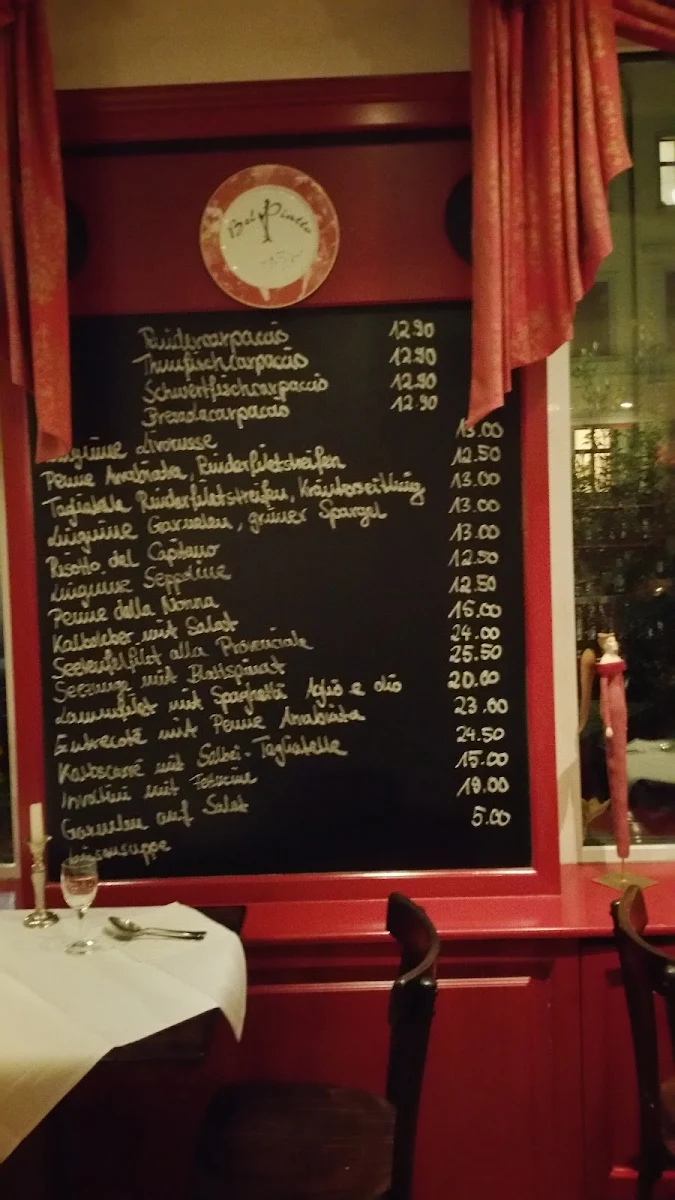 Bel Piatto
Rindercarpaccio 12.90
Thunfischcarpaccio 12.90
Schwertfischcarpaccio 12.90
Bresaolacarpaccio 12.90
Livornese 13.00
Penne Arrabiata, Rinderfiletstreifen 12.50
Tagliatelle Rinderfiletstreifen, Kräuterseitling 13.00
Linguine Garnelen, grüner Spargel 13.00
Risotto del Capitano 13.00
Linguine Seppoline 12.50
Penne della Nonna 12.50
Kalbsleber mit Salat 15.00
Seeteufelfilet alla Provenciale 24.00
Seezunge mit Blattspinat 25.50
Lammfilet mit Spaghetti Aglio e olio 20.00
Entrecoté mit Penne Arrabiata 23.00
Kalbscarré mit Salbei-Tagliatelle 24.50
Involtini mit 15.00
Garnelen auf Salat 19.00
5.00